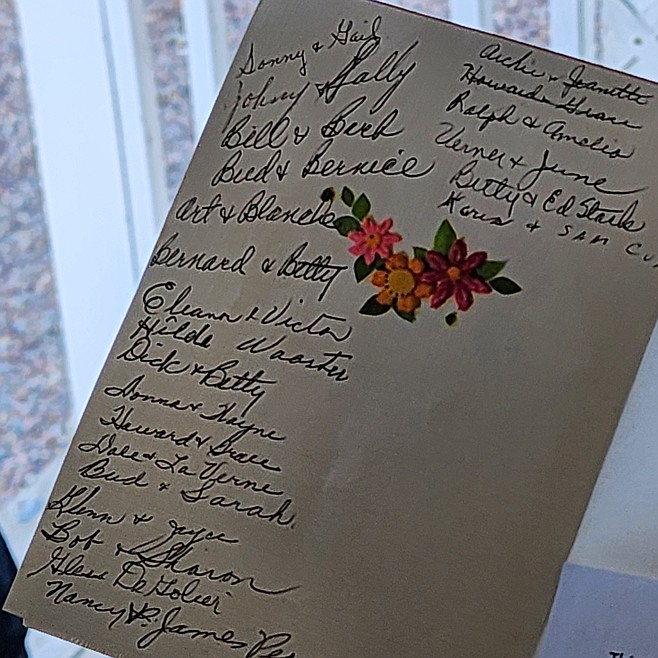 Sonny & Gail
Johny & Sally
Bill & Barb
Bud & Bernice
Art & Blanche
Bernard & Betty
Eleanor & Victor
Hilda Wooster
Dick & Betty
Donna & Wayne
Howard & Grace
Dale & La Verne
Bud & Sarah
Glenn & Joyce
Bob & Sharon
Nancy & James
Archie & Jeanette
Howard & Grace
Ralph & Amelia
Verner & June
Betty & Ed Stark
& SAM